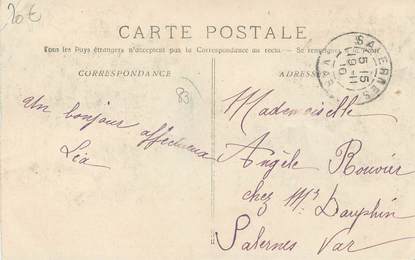 20€
CARTE POSTALE
Tous les Pays étrangers n'acceptent pas la Correspondance au recto. — Se renseigner à la Poste
CORRESPONDANCE
ADRESSE
SALERNES
15
9-11
10
VAR
83
Un bonjour affectueux
Léa
Mademoiselle
Angèle Rouvier
chez Mr Dauphin
Salernes Var